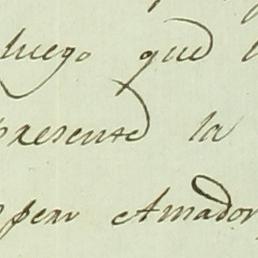 luego que
presente la
Amador